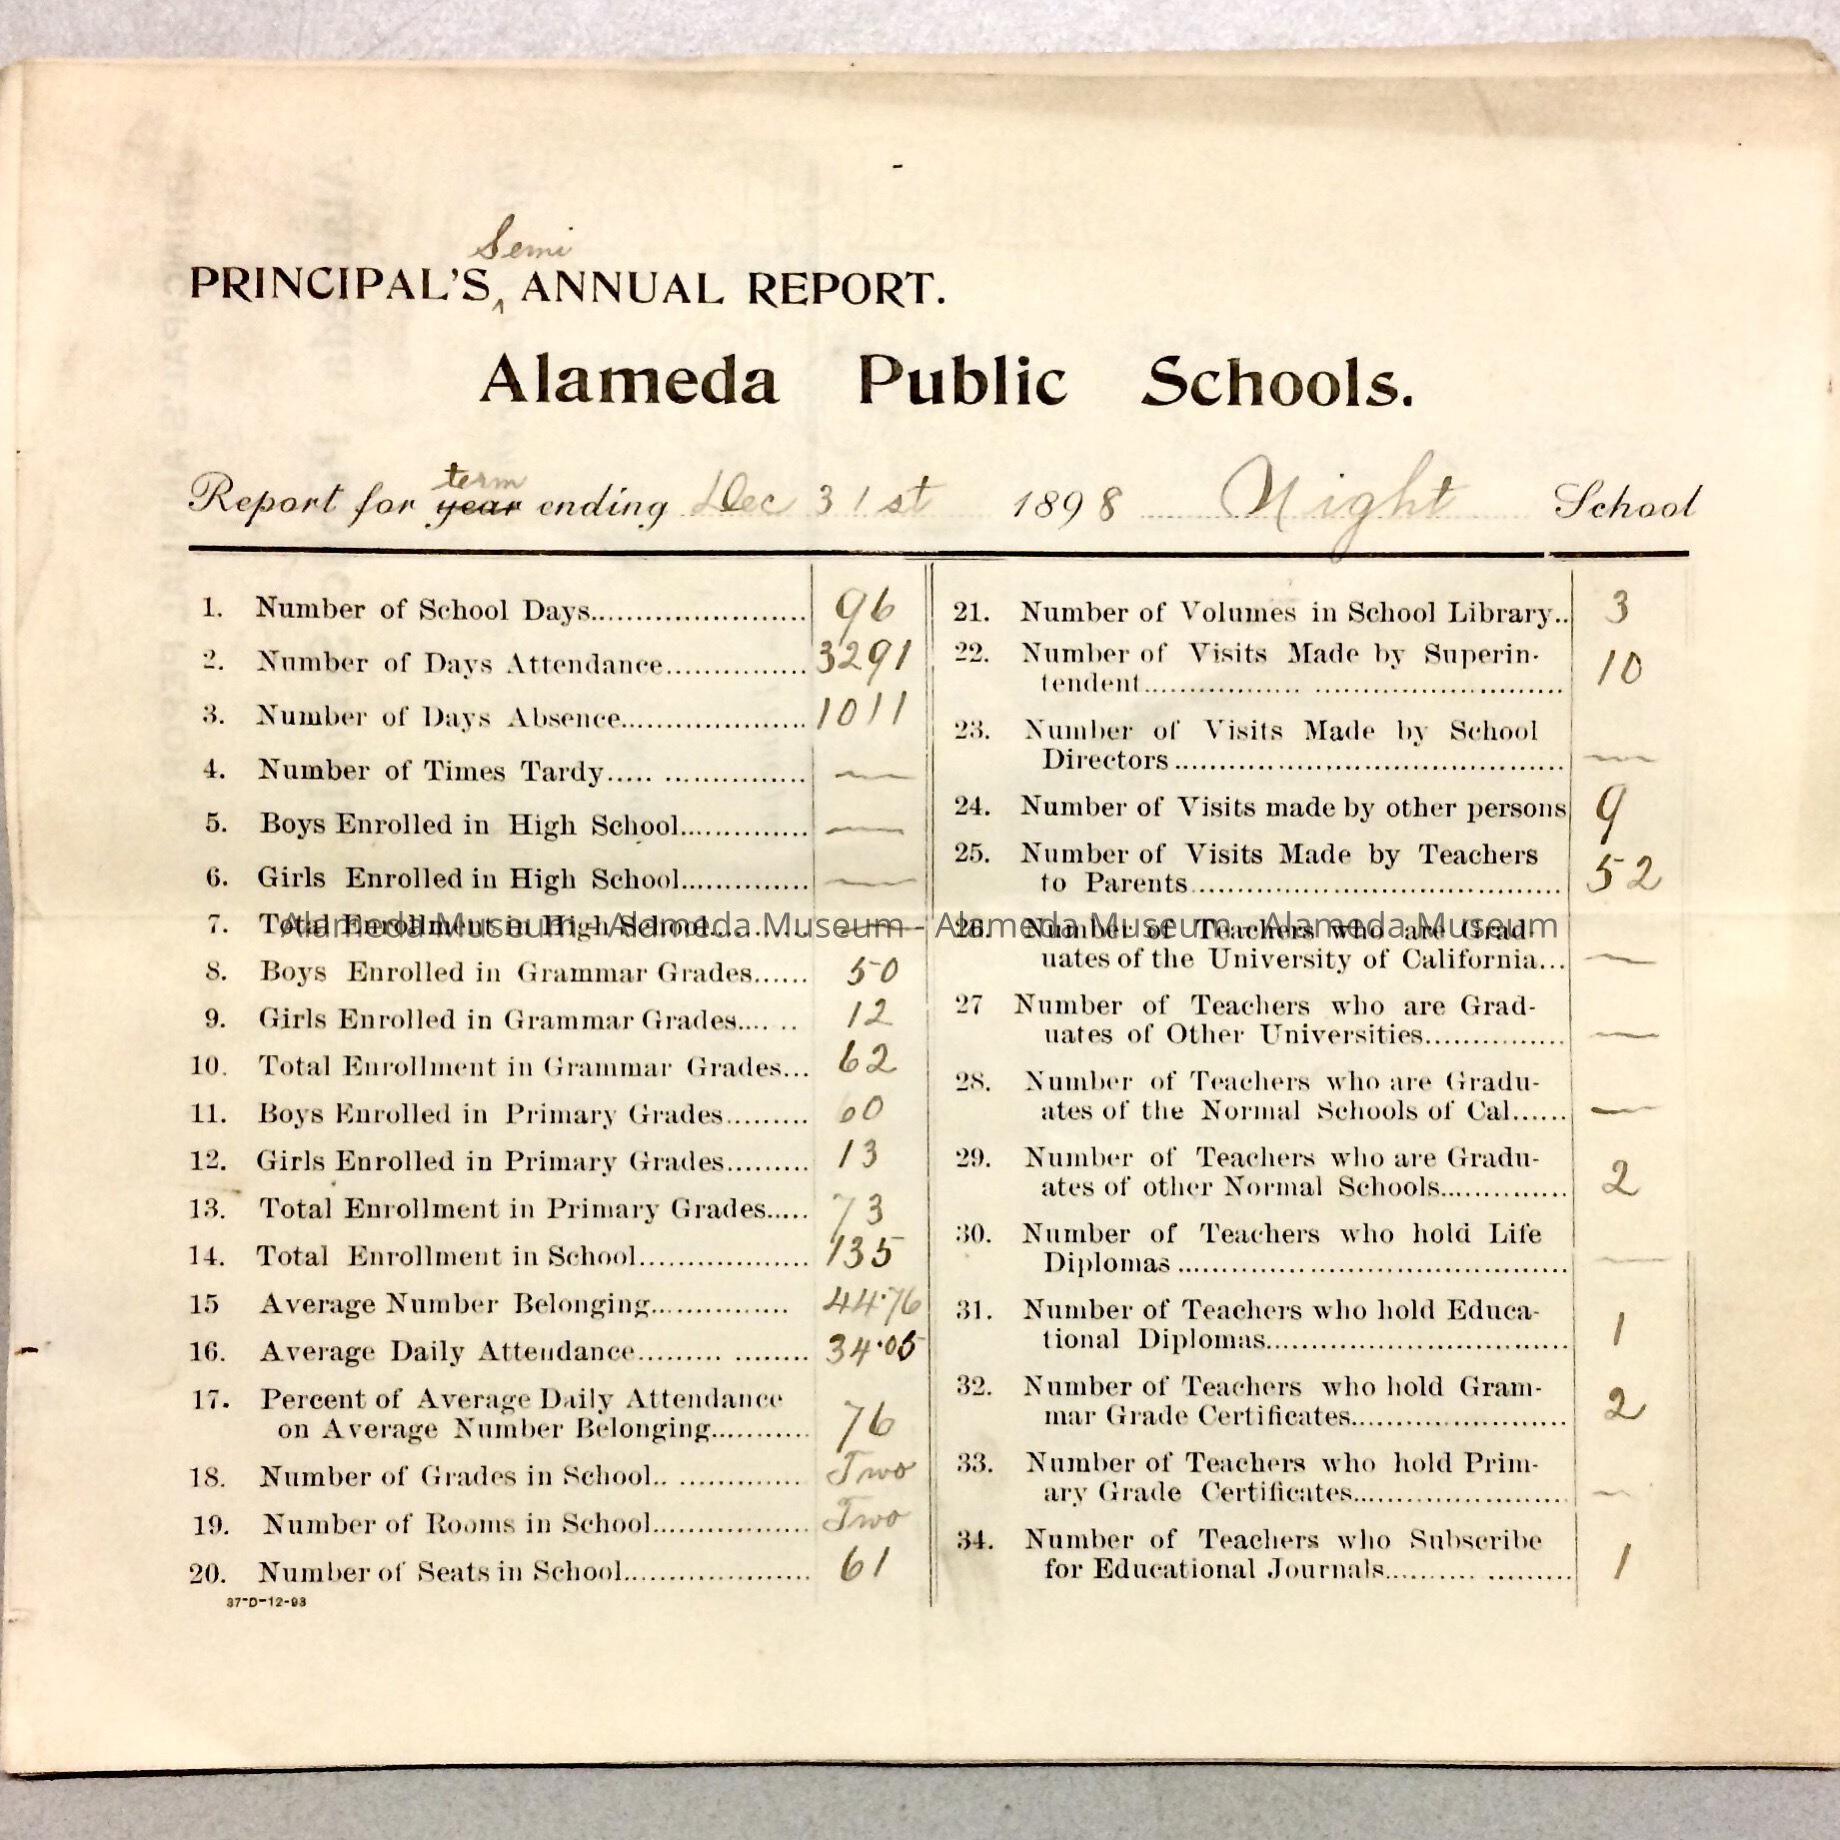 Semi
PRINCIPAL'S ‸ ANNUAL REPORT.
Alameda Public Schools.
term
Report for year ending Dec 31st 1898 Night School
1. Number of School Days 96
2. Number of Days Attendance 3291
3. Number of Days Absence 1011
4. Number of Times Tardy —
5. Boys Enrolled in High School —
6. Girls Enrolled in High School —
7. Total Enrollment in High School —
8. Boys Enrolled in Grammar Grades 50
9. Girls Enrolled in Grammar Grades 12
10. Total Enrollment in Grammar Grades 62
11. Boys Enrolled in Primary Grades 60
12. Girls Enrolled in Primary Grades 13
13. Total Enrollment in Primary Grades 73
14. Total Enrollment in School 135
15 Average Number Belonging 44·76
16. Average Daily Attendance 34·05
17. Percent of Average Daily Attendance
on Average Number Belonging 76
18. Number of Grades in School Two
19. Number of Rooms in School Two
20. Number of Seats in School 61
37-D-12-93
21. Number of Volumes in School Library 3
22. Number of Visits Made by Superin-
tendent 10
23. Number of Visits Made by School
Directors —
24. Number of Visits made by other persons 9
25. Number of Visits Made by Teachers
to Parents 52
26. Number of Teachers who are Grad-
uates of the University of California —
27 Number of Teachers who are Grad-
uates of Other Universities —
28. Number of Teachers who are Gradu-
ates of the Normal Schools of Cal —
29. Number of Teachers who are Gradu-
ates of other Normal Schools 2
30. Number of Teachers who hold Life
Diplomas —
31. Number of Teachers who hold Educa-
tional Diplomas 1
32. Number of Teachers who hold Gram-
mar Grade Certificates 2
33. Number of Teachers who hold Prim-
ary Grade Certificates —
34. Number of Teachers who Subscribe
for Educational Journals 1
Alameda Museum - Alameda Museum - Alameda Museum - Alameda Museum